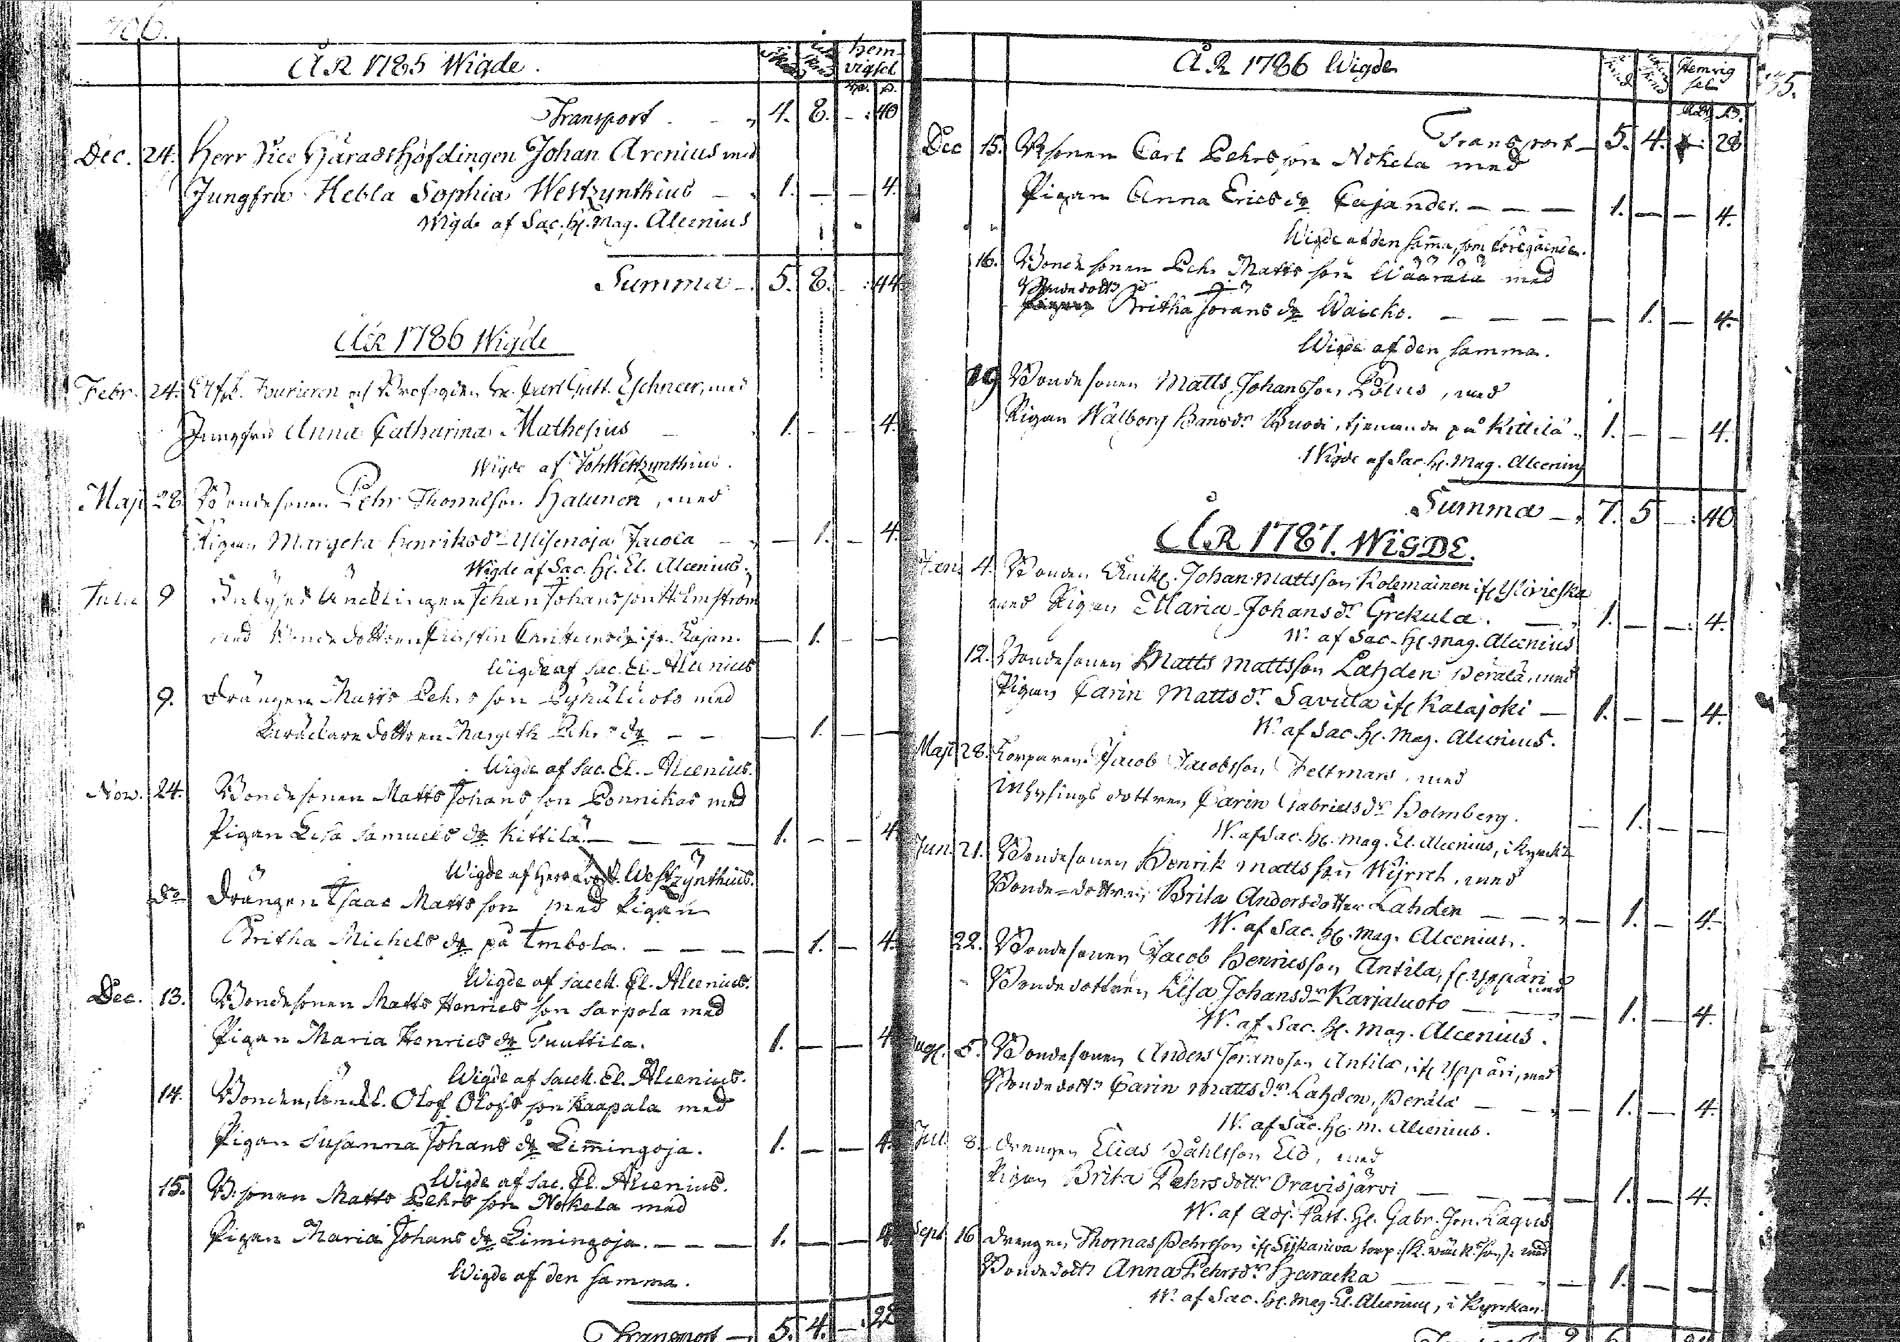 106.
ÅR 1785 Wigde.
Hem-
vigsel
Transport - 4. 8. - :40
Dec. 24. Herr Vice Häradshöfdingen Johan Arenius med
Jungfru Hebla Sophia Westzynthius - 1. - - 4.
Wigde af Sac. H. Mag. Alcenius
Summa - 5. 8. - :44
ÅR 1786 Wigde
Febr. 24. Fourieren Carl Gust. med
Jungfru Anna Catharina Mathesius - 1. - - 4.
Wigde af Joh Westzynthius.
Maji 28 Bondesonen Pehr Thomasson Halunen, med
Pigan Margeta Henriksdr Ylisenoja Jacola - - 1. - 4.
Wigde af Sac. H. El. Alcenius.
Julii 9 Johan Johansson Holmström
med Bonde dottren - 1. - -
Wigde af Sac. El. Alcenius
9. Drängen Matts Pehrs son med
dottren Margeth Pehrs dr - - - 1. - -
Wigde af Sac. El. Alcenius.
Nov. 24. Bondesonen Matts Johans son Ponnikas med
Pigan Lisa Samuels dr Kittilä - - - 1. - - 4
Wigde af Herr Westzynthius.
Do Drängen Isaac Matts son med Pigan
Britha Michels dr på Embola. - - - - 1. - 4.
Wigde af Sacell. El. Alcenius.
Dec. 13. Bondesonen Matts Henrics son Sarpola med
Pigan Maria Henrics dr Tuuttila. 1. - - 4
Wigde af Sacell. El. Alcenius.
14. Bonden, Olof Olofs son Kaapala med
Pigan Susanna Johans dr Limingoja. 1. - - 4.
Wigde af Sac. El. Alcenius.
15. B. sonen Matts Pehrs son Nokela med
Pigan Maria Johans dr Limingoja. - - - 1. - - 4.
Wigde af den samma.
Transport - 5. 4. - :28
ÅR 1786 Wigde
Hemvig
sel
Transport - 5. 4. :28
Dec 15. B sonen Carl Pehrs son Nokela med
Pigan Anna Erics dr Cajander. - - - 1. - - 4.
Wigde af den samma, som föregående.
16. Bonde sonen Pehr Matts son Wäärälä med
Bondedottr Britha Jörans dr Waicko. - - - - 1. - 4.
Wigde af den samma.
19 Bondesonen Matts Johansson Pölus, med
Pigan Wälborg Hansdr Buodi, tjenande på Kittilä 1. - - 4.
Wigde af Sac. H. Mag. Alcenius
Summa - 7. 5 - :40
ÅR 1787. WIGDE.
Jan. 4. Bonden Enckl. Johan Mattsson Kolemainen ifr Ylivieska
med Pigan Maria Johansdr Grekula. - 1. - - 4.
W. af Sac. H. Mag. Alcenius
12. Bondesonen Matts Mattsson Lahden Perälä, med
Pigan Carin Mattsdr Savilla ifr Kalajoki - 1. - - 4.
W. af Sac. H. Mag. Alcenius.
Maji 28. Corporen Jacob Jacobsson Feltman, med
Inhysings dottren Carin Gabrielsdr Holmberg. - 1. - -
W. af Sac. H. Mag. El. Alcenius, i Kyrck.
Jun. 21. Bondesonen Henrik Matts son Wijrret, med
Bonde-dottren Brita Andersdotter Lahden - - - 1. - 4.
W. af Sac. H. Mag. Alcenius.
22. Bondesonen Jacob Henricsson Antila, fr Yppäri med
Bondedottren Lisa Johansdr Karjaluoto - - 1. - 4.
W. af Sac. H. Mag. Alcenius.
5. Bondesonen Anders Göransson Antila, ifr Yppäri, med
Bondedottr Carin Mattsdr Lahden, Perälä - - - 1. - 4.
W. af Sac. H. M. Alcenius.
Jul. 8. Drengen Elias Påhlsson Eld, med
Pigan Brita Pehrsdottr Oravisjärvi - - - 1. - 4.
W. af Adj. Past. H. Gabr. Jon. Lagus
Sept. 16 Drengen Thomas Pehrsson ifr med
Bondedottr Anna Pehrsdr Haracka - - - 1. - -
W. af Sac. H. Mag. El. Alcenius, i Kyrckan.